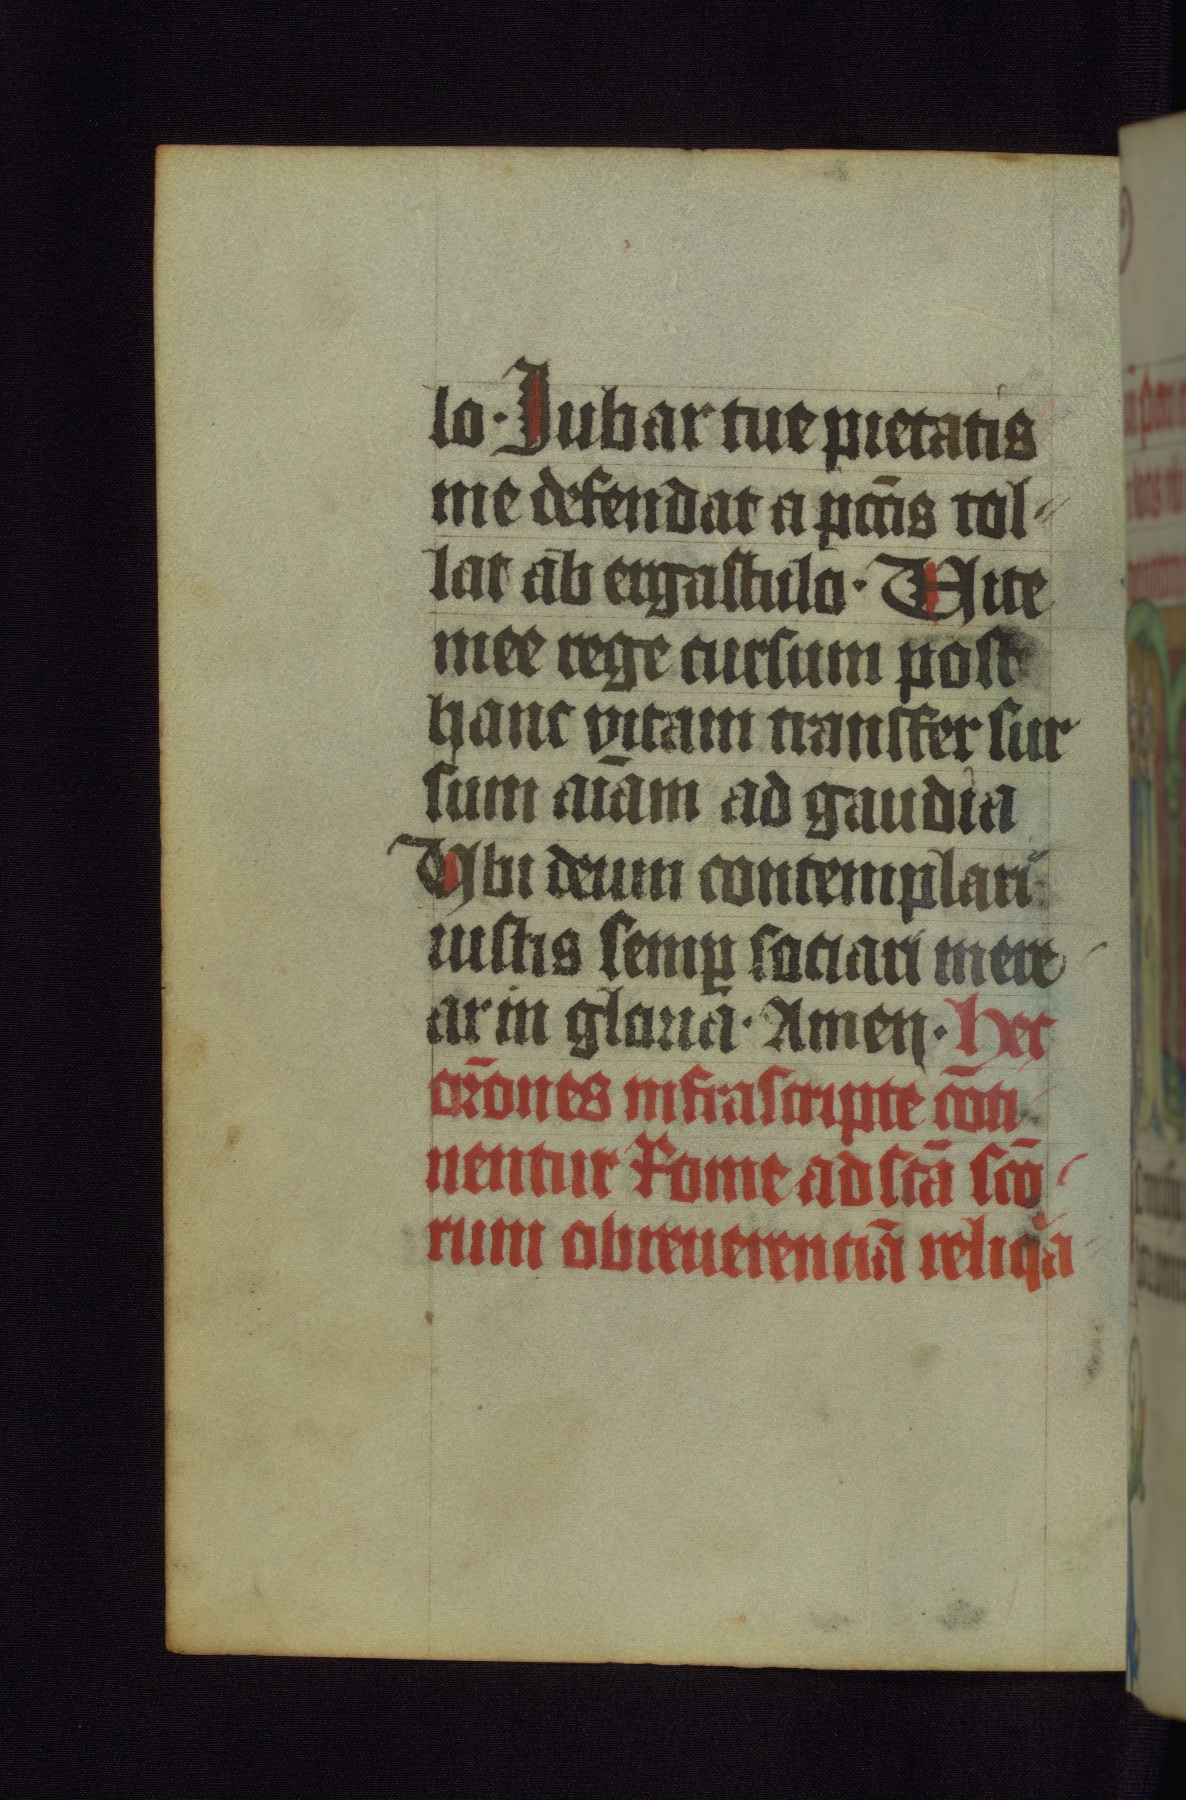 lo · Jubar tue pietatis
me defendat a pctīs tol-
lat ab ergastulo · Vite
mee rege cursum post
hanc vitam transfer sur
sum aīam ad gaudia
Vbi deum contemplari
iustis semꝑ sociari mere
ar in gloria · Amen · Hec
or̄ones infrascripte cōti
nentur Rome ad sc̄ā sc̄o
rum ob reuerenciā reliqͣ